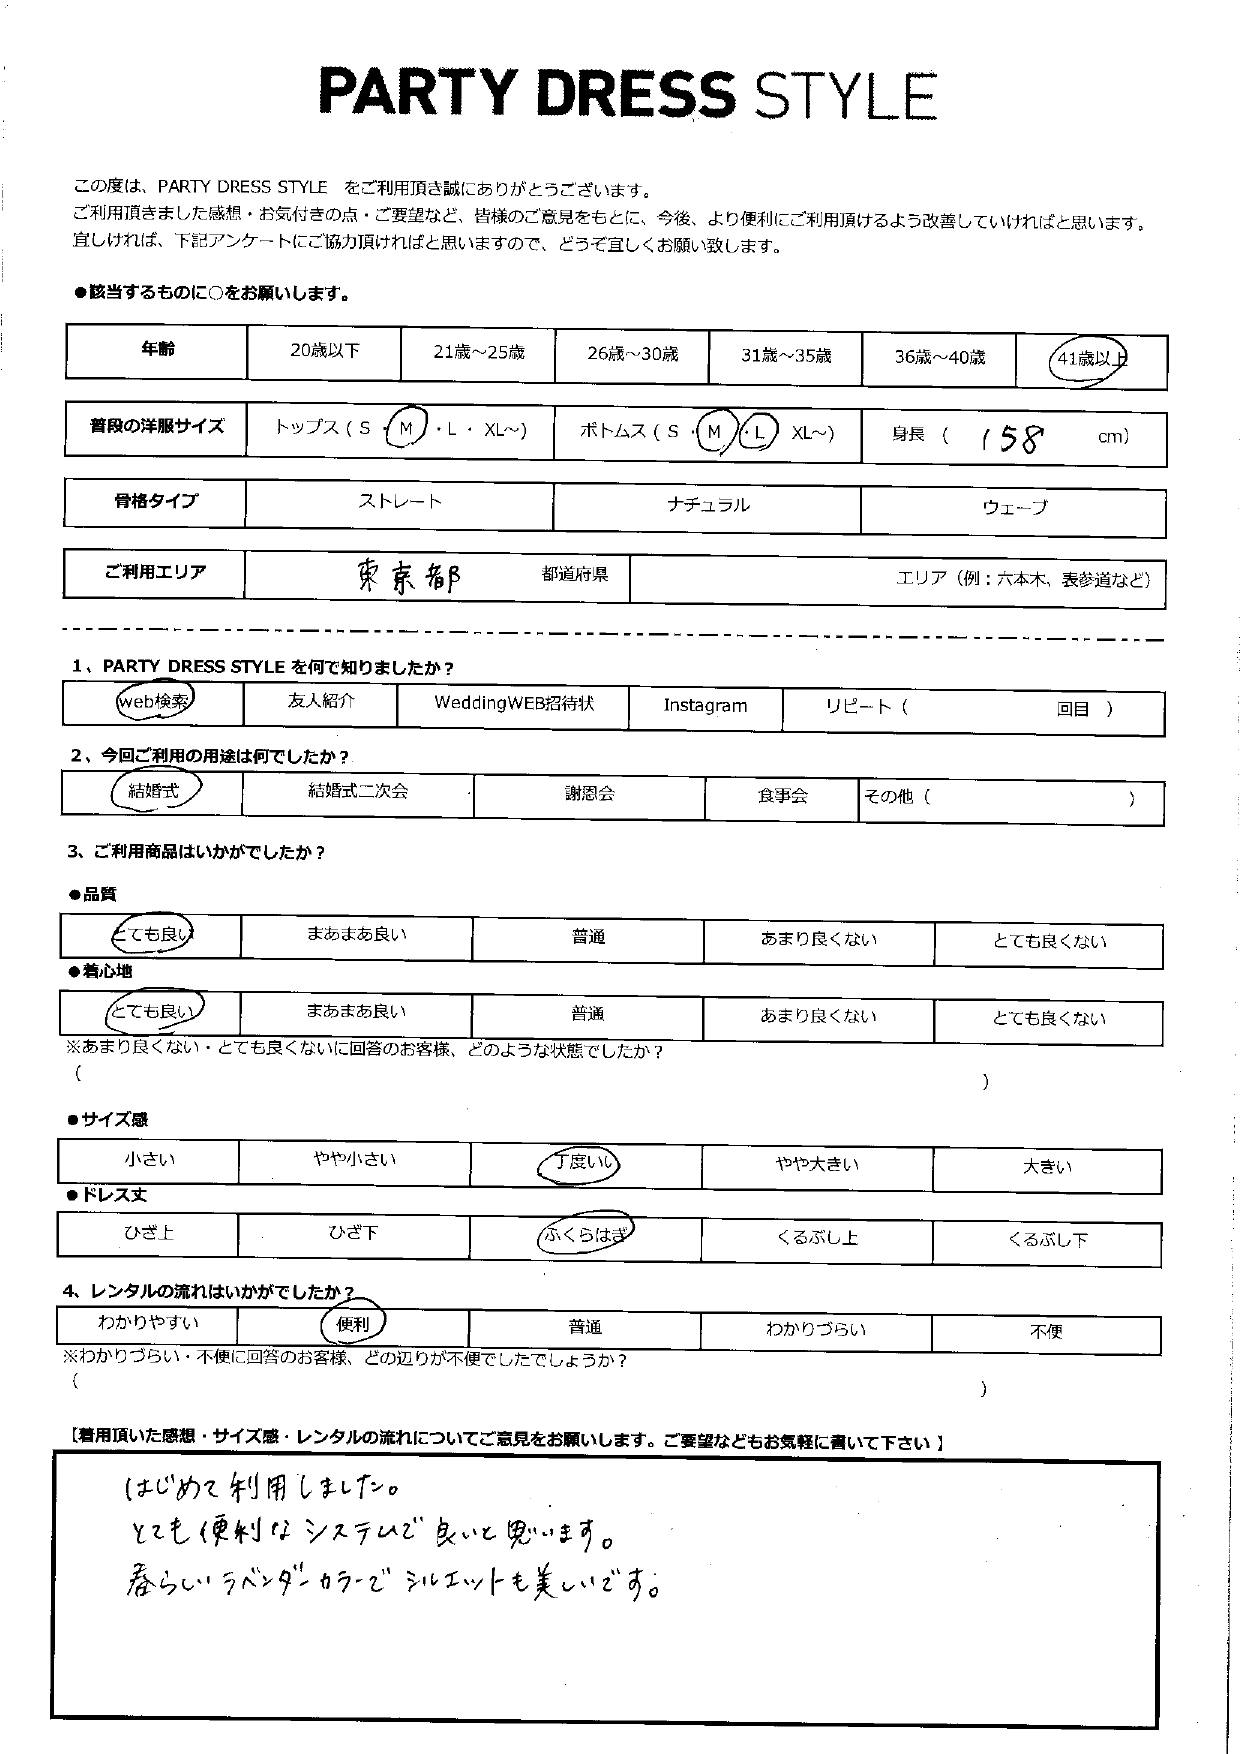 PARTY DRESS STYLE
この度は、PARTY DRESS STYLE　をご利用頂き誠にありがとうございます。
ご利用頂きました感想・お気付きの点・ご要望など、皆様のご意見をもとに、今後、より便利にご利用頂けるよう改善していければと思います。
宜しければ、下記アンケートにご協力頂ければと思いますので、どうぞ宜しくお願い致します。
●該当するものに○をお願いします。
年齢 20歳以下 21歳～25歳 26歳～30歳 31歳～35歳 36歳～40歳 41歳以上
普段の洋服サイズ トップス（ S ・ M ・ L ・ XL～） ボトムス（ S ・ M ・ L XL～） 身長 （ 158 cm）
骨格タイプ ストレート ナチュラル ウェーブ
ご利用エリア 東京都 都道府県 エリア（例：六本木、表参道など）
1、PARTY DRESS STYLE を何で知りましたか？
web検索 友人紹介 WeddingWEB招待状 Instagram リピート（ 回目 ）
2、今回ご利用の用途は何でしたか？
結婚式 結婚式二次会 謝恩会 食事会 その他（ ）
3、ご利用商品はいかがでしたか？
●品質
とても良い まあまあ良い 普通 あまり良くない とても良くない
●着心地
とても良い まあまあ良い 普通 あまり良くない とても良くない
※あまり良くない・とても良くないに回答のお客様、どのような状態でしたか？
（ ）
●サイズ感
小さい やや小さい 丁度いい やや大きい 大きい
●ドレス丈
ひざ上 ひざ下 ふくらはぎ くるぶし上 くるぶし下
4、レンタルの流れはいかがでしたか？
わかりやすい 便利 普通 わかりづらい 不便
※わかりづらい・不便に回答のお客様、どの辺りが不便でしたでしょうか？
（ ）
【着用頂いた感想・サイズ感・レンタルの流れについてご意見をお願いします。ご要望などもお気軽に書いて下さい 】
はじめて利用しました。
とても便利なシステムで良いと思います。
春らしいラベンダーカラーでシルエットも美しいです。